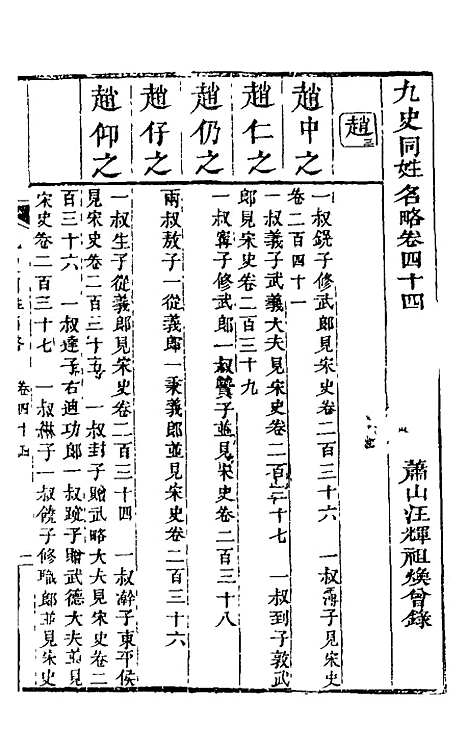 九史同姓名略卷四十四 蕭山汪輝祖煥曾錄
趙
趙中之
一叔銳子修武郎見宋史卷二百三十六 一叔子見宋史
卷二百四十一
趙仁之
一叔義子武義大夫見宋史卷二百三十七 一叔到子敦武
郎見宋史卷二百三十九
趙仍之
一叔寗子修武郎一叔贊子並見宋史卷二百三十八
趙仔之
兩叔敖子一從義郎一秉義郎並見宋史卷二百三十六
趙仰之
一叔生子從義郎見宋史卷二百三十四 一叔澣子東平侯
見宋史卷二百三十五 一叔封子贈武略大夫見宋史卷二
百三十六 一叔達子右迪功郎一叔子贈武德大夫並見
宋史卷二百三十七 一叔綝子一叔饒子修職郎並見宋史
卷四十四 一